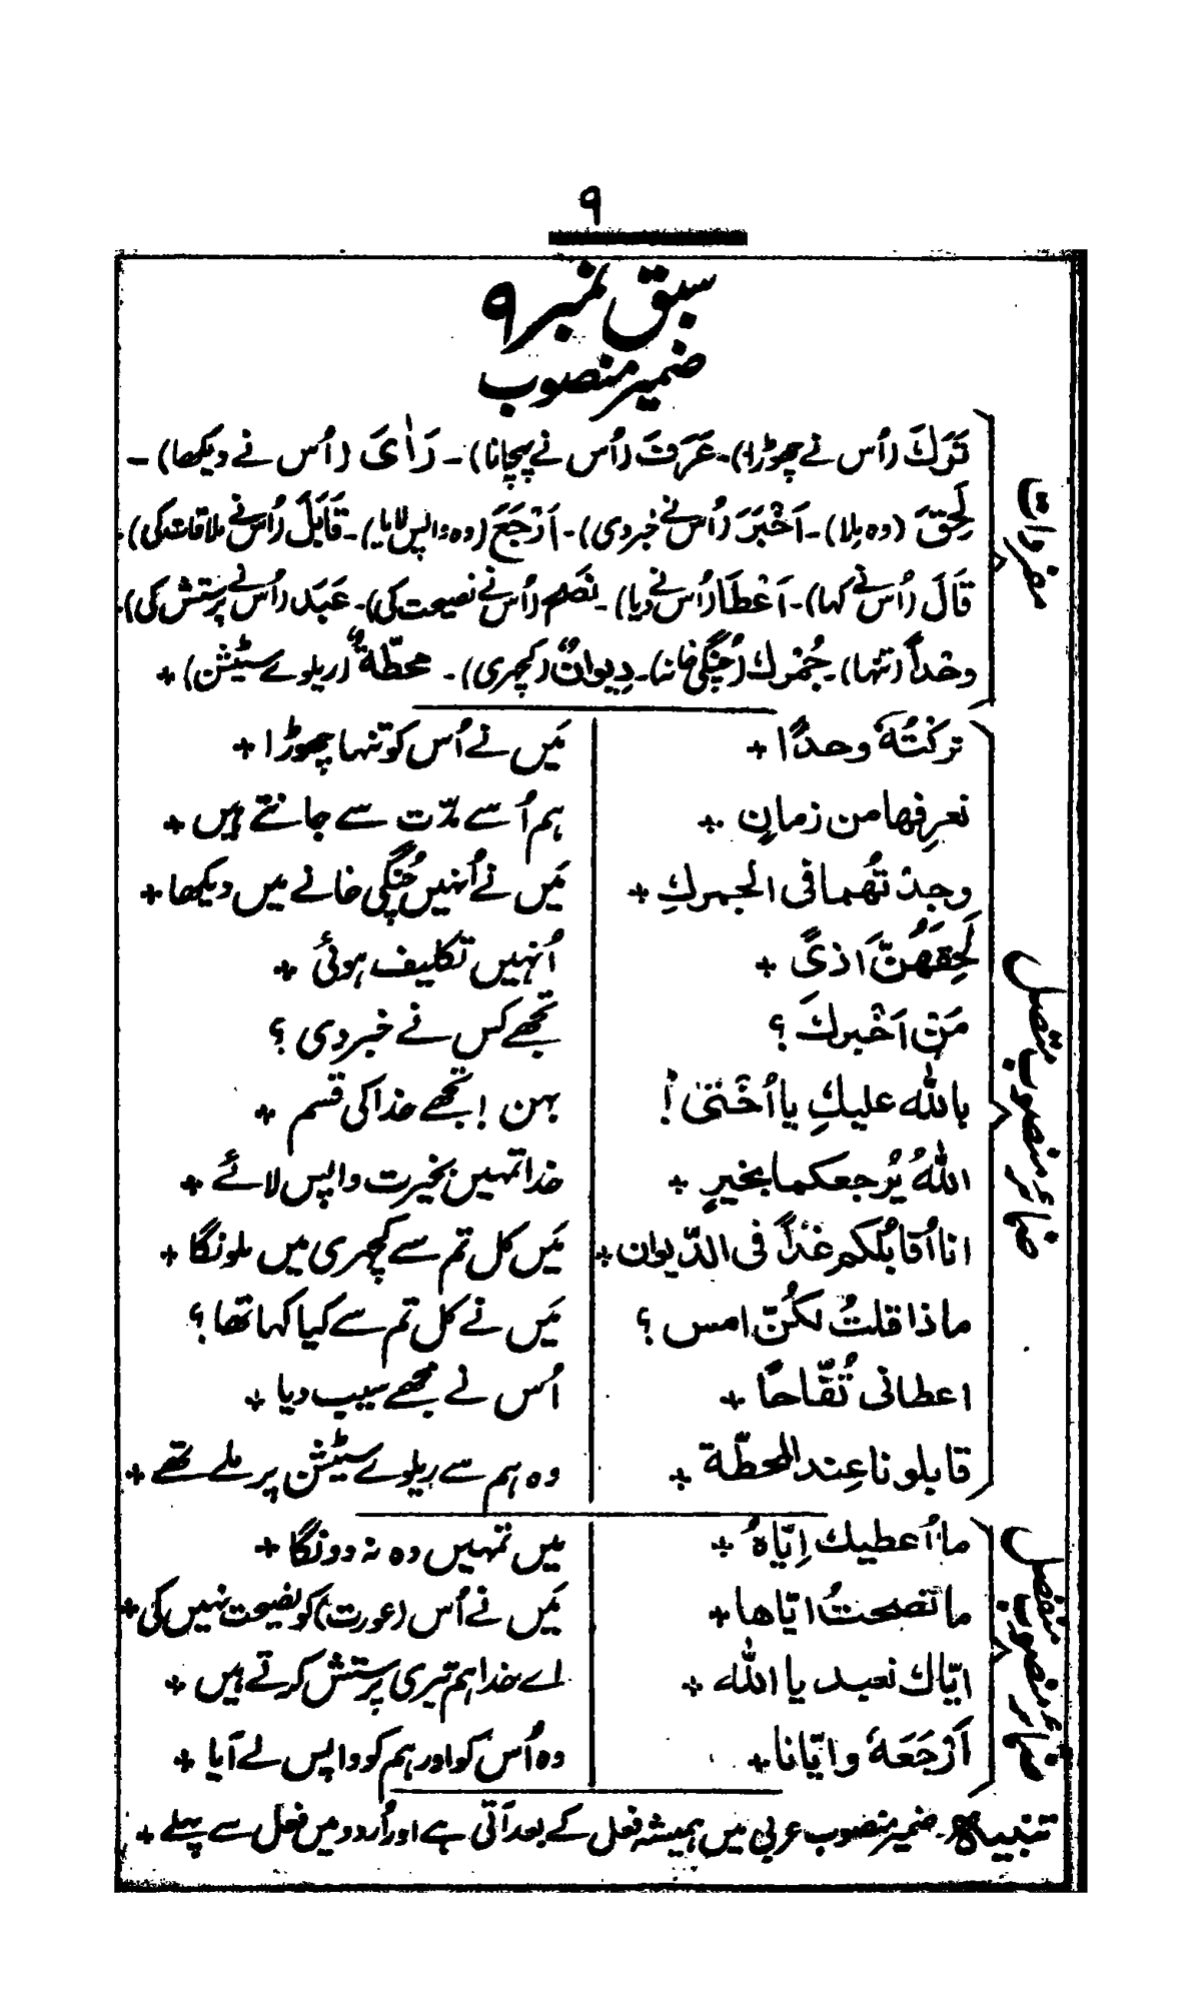 ۹
سبق نمبر ۹
ضمیر منصوب
مفردات
تَرَكَ (اُس نے چھوڑا)۔ عَرَفَ (اُس نے پہچانا)۔ رَاٰیَ (اُس نے دیکھا)۔
لَحِقَ (وہ ملا)۔ اَخْبَرَ (اُس نے خبر دی)۔ اَرْجَعَ (وہ واپس لایا)۔ قَابَلَ (اُس نے ملاقات کی)۔
قَالَ (اُس نے کہا)۔ اَعْطَا (اُس نے دیا)۔ نَصَحَ (اُس نے نصیحت کی)۔ عَبَدَ (اُس نے پرستش کی)۔
وحْداً (تنہا)۔ جُمْرك (چُنگی خانہ)۔ دِیوانٌ (کچہری)۔ محطّةٌ (ریلوے سٹیشن) +
ضمائر منصوب متصل
تركْتُهٗ وحدًا + مَیں نے اُس کو تنہا چھوڑا +
نعرِفها من زمانٍ + ہم اُسے مدّت سے جانتے ہیں +
وجدْتُهما فی الجمركِ + مَیں نے اُنہیں چُنگی خانے میں دیکھا +
لَحِقَهُنَّ اَذیً + اُنہیں تکلیف ہوئی +
مَنْ اَخْبركَ ؟ تجھے کس نے خبر دی ؟
باللّٰه علیكِ یا اُخْتی ! بہن ! تجھے خدا کی قسم +
اللّٰهُ یُرجعكما بخیرٍ + خدا تمہیں بخیرت واپس لائے +
انا اُقابُلكم غداً فی الدّیوان + مَیں کل تم سے کچہری میں ملونگا +
ماذا قلتُ لكُنّ امس ؟ مَیں نے کل تم سے کیا کہا تھا ؟
اعطانی تُفّاحًا + اُس نے مجھے سیب دیا +
قابلونا عِند المحطّة + وہ ہم سے ریلوے سٹیشن پر ملے تھے +
ضمائر منصوب منفصل
ما اُعطیك اِیّاهُ + میں تمہیں وہ نہ دونگا +
ما نصحتُ ایّاها + مَیں نے اُس (عورت) کو نصیحت نہیں کی +
ایّاك نعبد یا اللّٰه + اے خدا ہم تیری پرستش کرتے ہیں +
اَرْجَعَهٗ وایّانا + وہ اُس کو اور ہم کو واپس لے آیا +
تنبیہ۔ ضمیر منصوب عربی میں ہمیشہ فعل کے بعد آتی ہے اور اُردو میں فعل سے پہلے +